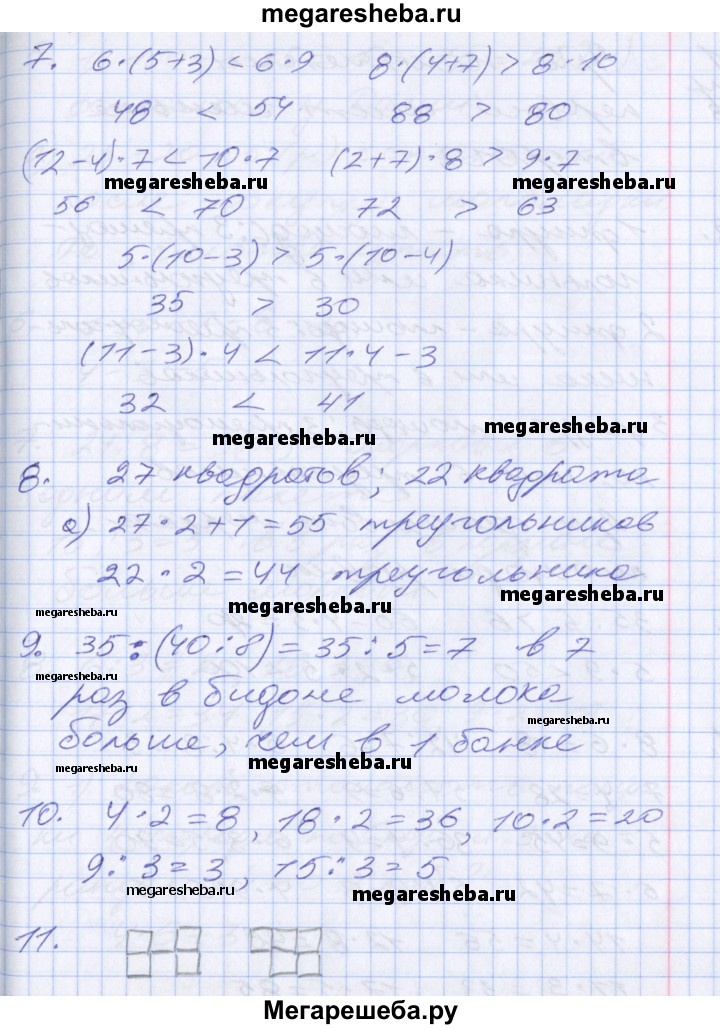 megaresheba.ru
7. 6·(5+3) < 6·9 8·(4+7) > 8·10
48 < 54 88 > 80
(12-4)·7 < 10·7 (2+7)·8 > 9·7
megaresheba.ru megaresheba.ru
56 < 70 72 > 63
5·(10-3) > 5·(10-4)
35 > 30
(11-3)·4 < 11·4-3
32 < 41
megaresheba.ru megaresheba.ru
8. 27 квадратов; 22 квадрата
а) 27·2+1=55 треугольников
22·2=44 треугольника
megaresheba.ru megaresheba.ru megaresheba.ru
9. 35:(40:8)=35:5=7 в 7
megaresheba.ru
раз в бидоне молока
megaresheba.ru
больше, чем в 1 банке
megaresheba.ru megaresheba.ru
10. 4·2=8, 18·2=36, 10·2=20
9:3=3, 15:3=5
megaresheba.ru megaresheba.ru
11.
Мегарешеба.ру